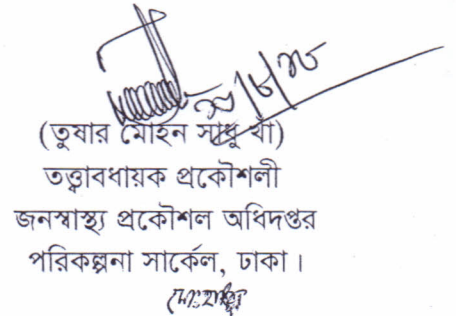 (তুষার মোহন সাধু খাঁ)
তত্ত্বাবধায়ক প্রকৌশলী
জনস্বাস্থ্য প্রকৌশল অধিদপ্তর
পরিকল্পনা সার্কেল, ঢাকা।